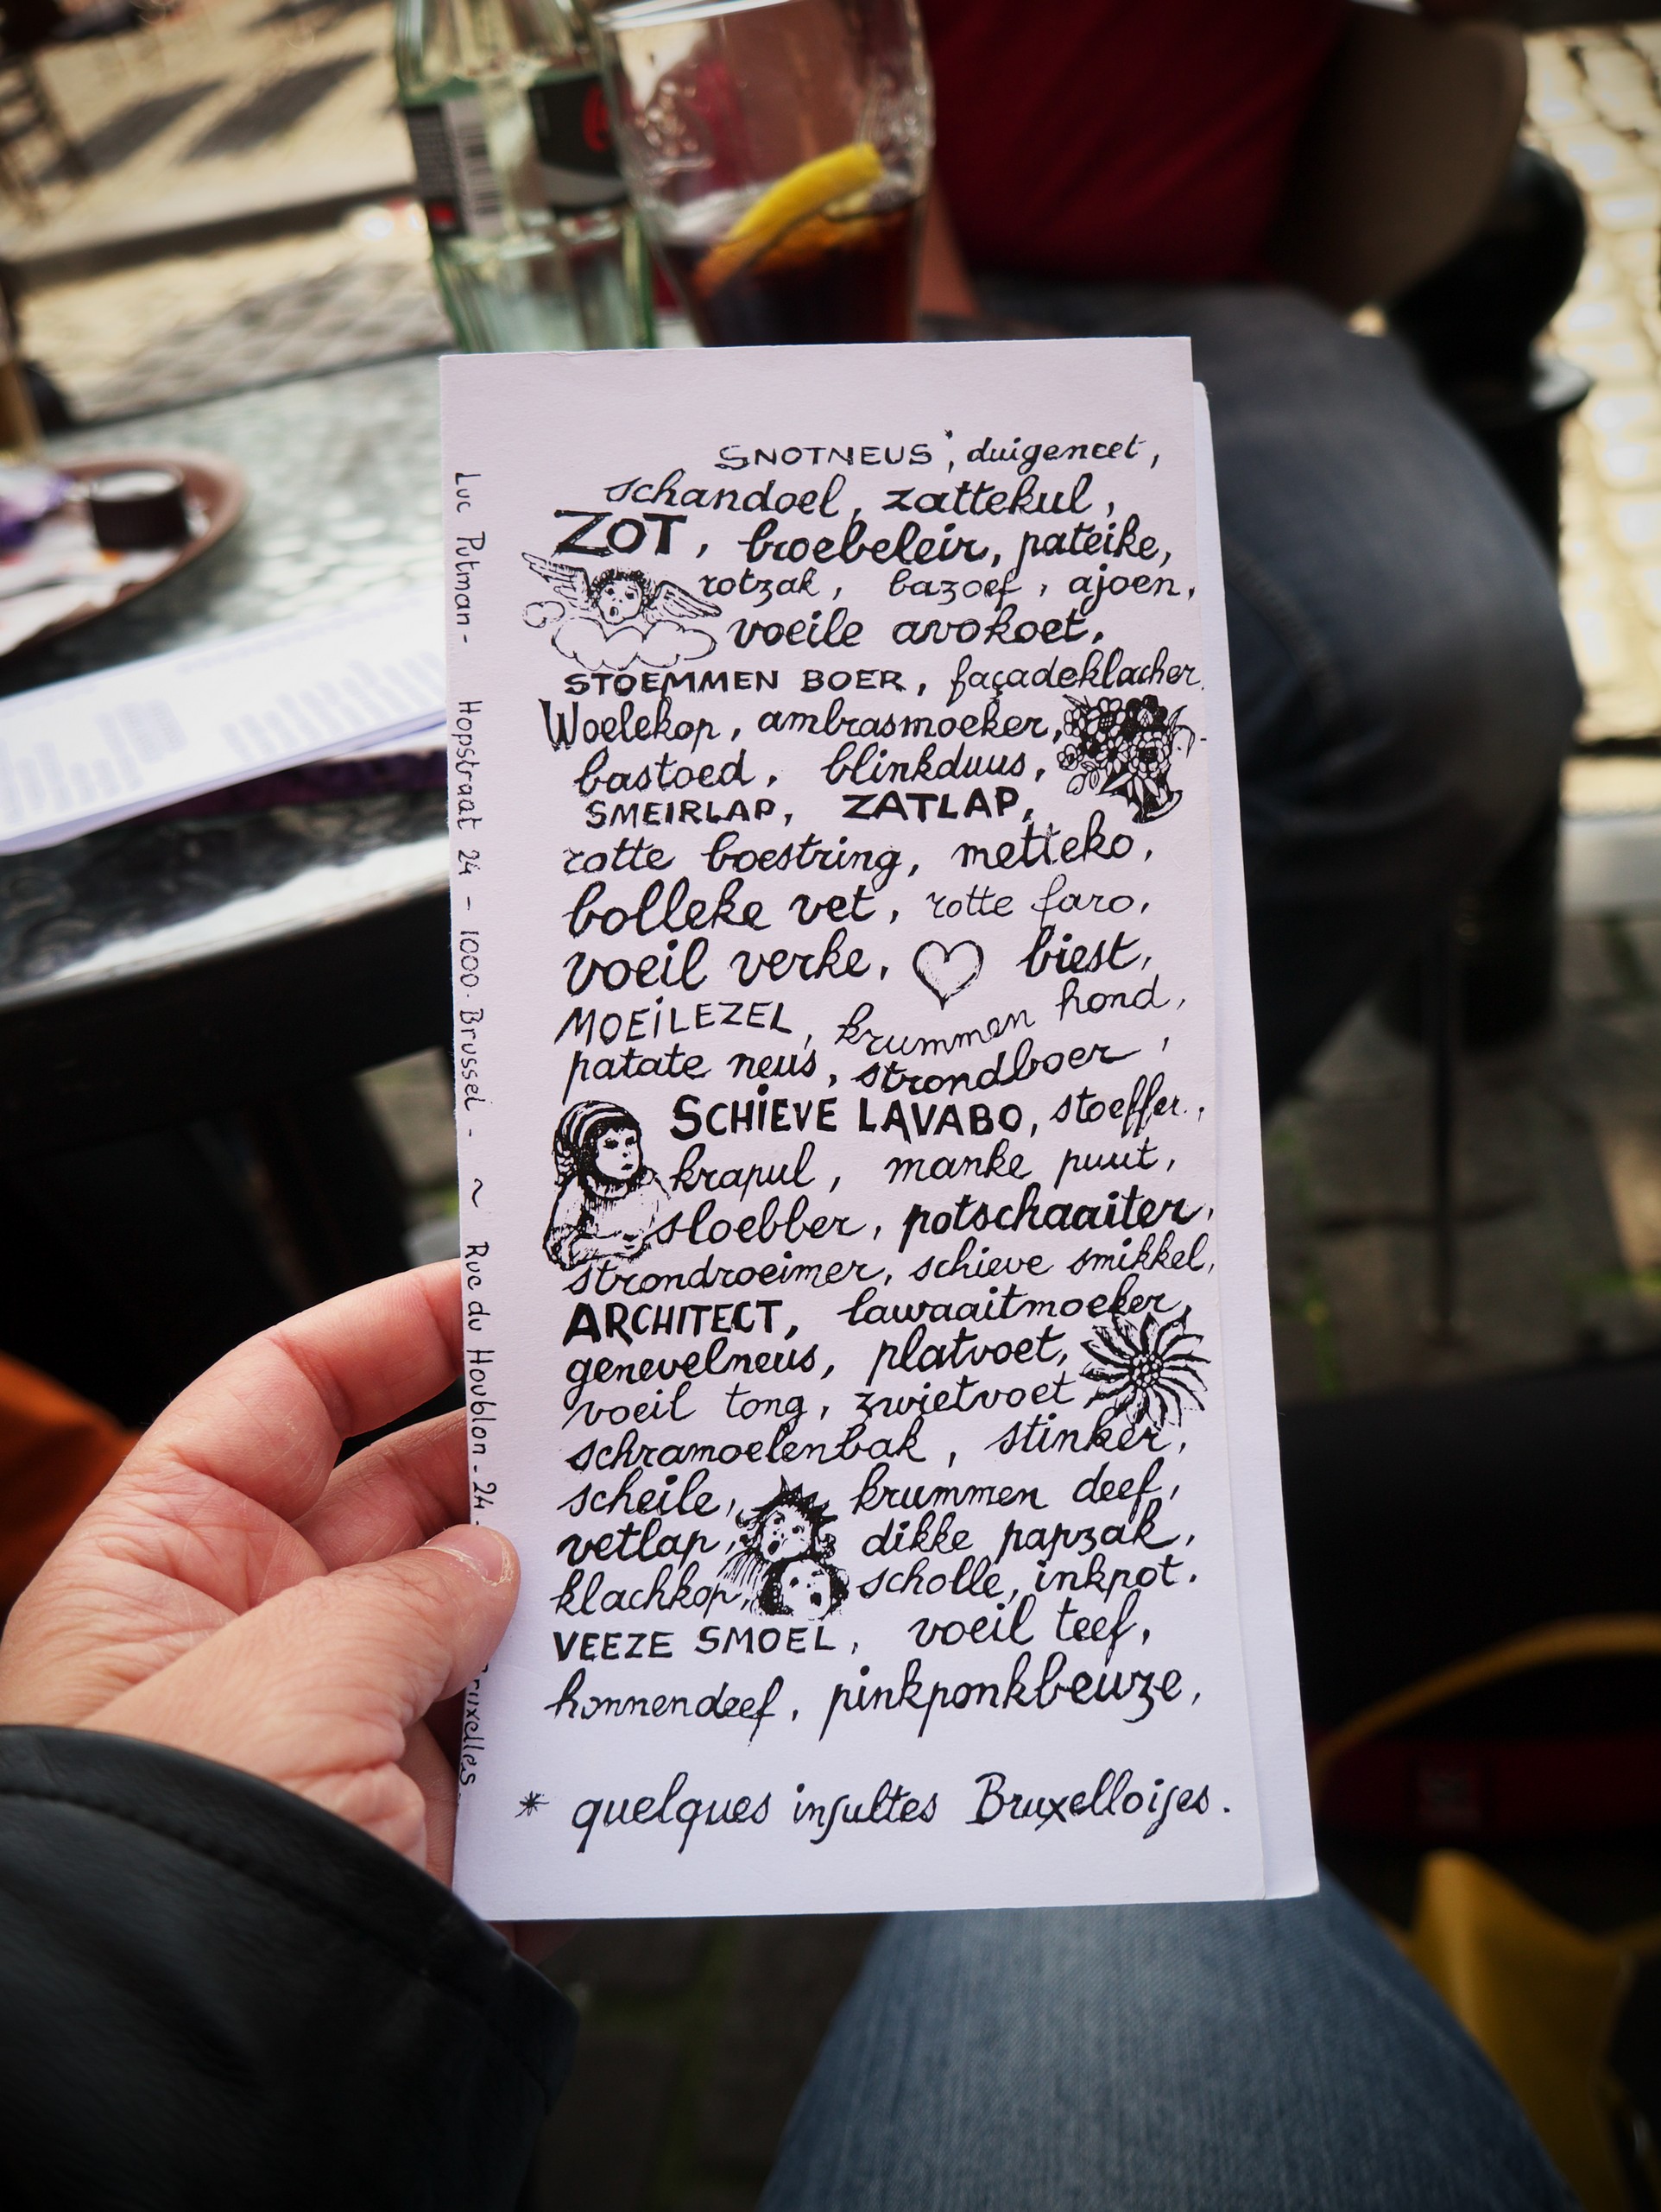 SNOTNEUS*, duigeneet,
schandoel, zattekul,
ZOT, broebeleir, pateike,
rotzak, bazoef, ajoen,
voeile avokoet,
STOEMMEN BOER, façadeklacher,
Woelekop, ambrasmoeker,
bastoed, blinkduus,
SMEIRLAP, ZATLAP,
rotte boestring, metteko,
bolleke vet, rotte faro,
voeil verke, biest,
MOEILEZEL, krummen hond,
patate neus, strondboer,
SCHIEVE LAVABO, stoeffer,
krapul, manke puut,
sloebber, potschaaiter,
strondroeimer, schieve smikkel,
ARCHITECT, lawaaitmoeker,
genevelneus, platvoet,
voeil tong, zwietvoet,
schramoelenbak, stinker,
scheile, krummen deef,
vetlap, dikke papzak,
klachkop, scholle, inkpot.
VEEZE SMOEL, voeil teef,
honnendeef, pinkponkbeuze,
* quelques insultes Bruxelloises.
Luc Putman - Hopstraat 24 - 1000 Brussel - ~ Rue du Houblon - 24 -